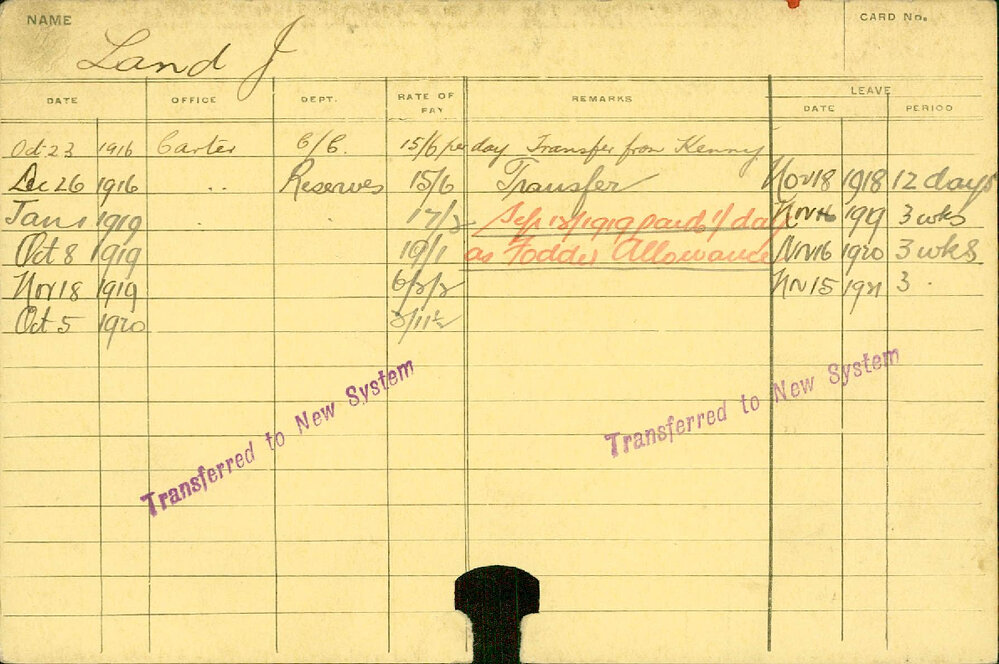 NAME
CARD No.
Land J
DATE OFFICE DEPT. RATE OF PAY REMARKS LEAVE
DATE PERIOD
Oct 23 1916 Carter C/C. 15/6 per day Transfer from Kenny
Dec 26 1916 " Reserves 15/6 Transfer Nov 18 1918 12 days
Jan 1 1919 17/2 Sep 12/1919 paid 1/ day Nov 16 1919 3 wks
Oct 8 1919 19/1 as Fodder Allowance Nov 16 1920 3 wks
Nov 18 1919 Nov 15 1921 3
Oct 5 1920
Transferred to New System
Transferred to New System